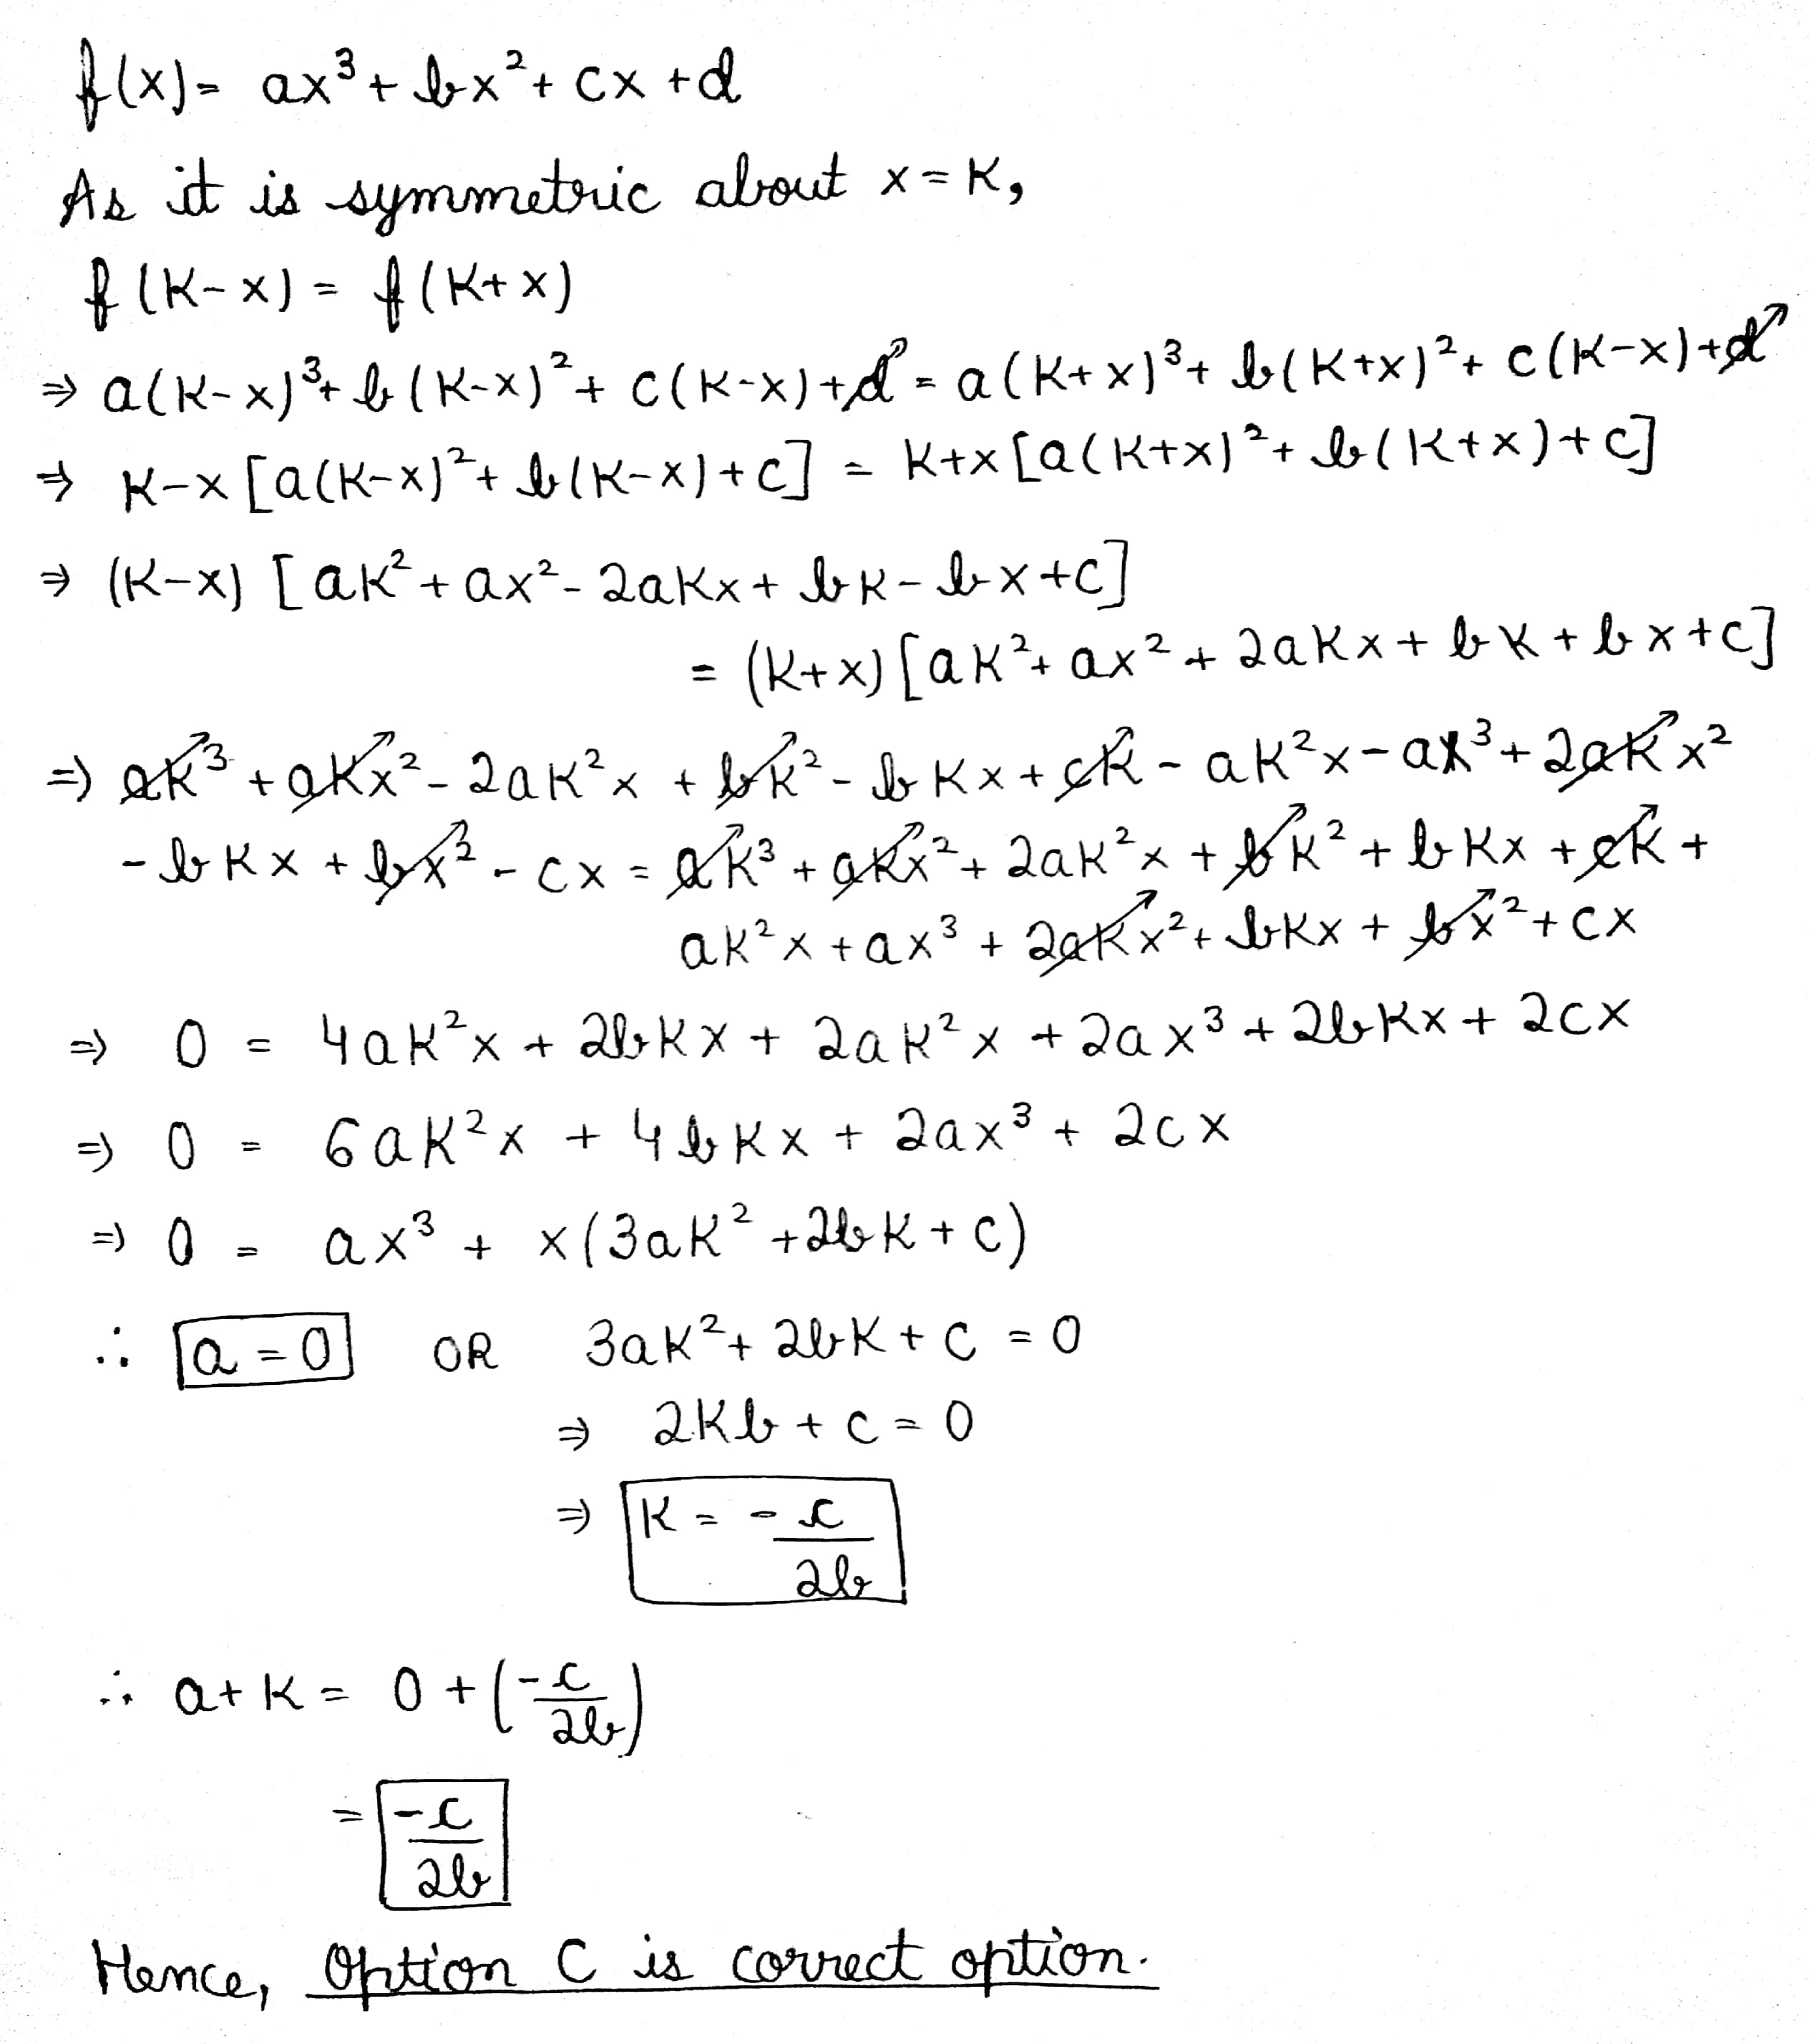 f(x) = ax³ + bx² + cx + d
As it is symmetric about x = K,
f(K-x) = f(K+x)
⇒ a(K-x)³ + b(K-x)² + c(K-x) + d = a(K+x)³ + b(K+x)² + c(K-x) + d
⇒ K-x [a(K-x)² + b(K-x) + c] = K+x [a(K+x)² + b(K+x) + c]
⇒ (K-x) [aK² + ax² - 2aKx + bK - bx + c]
= (K+x) [aK² + ax² + 2aKx + bK + bx + c]
⇒ aK³ + aKx² - 2aK²x + bK² - bKx + cK - aK²x - ax³ + 2aKx²
- bKx + bx² - cx = aK³ + aKx² + 2aK²x + bK² + bKx + cK +
aK²x + ax³ + 2aKx² + bKx + bx² + cx
⇒ 0 = 4aK²x + 2bKx + 2aK²x + 2ax³ + 2bKx + 2cx
⇒ 0 = 6aK²x + 4bKx + 2ax³ + 2cx
⇒ 0 = ax³ + x(3aK² + 2bK + c)
∴ a = 0 OR 3aK² + 2bK + c = 0
⇒ 2Kb + c = 0
⇒ K = -c/2b
∴ a + K = 0 + (-c/2b)
= -c/2b
Hence, Option C is correct option.